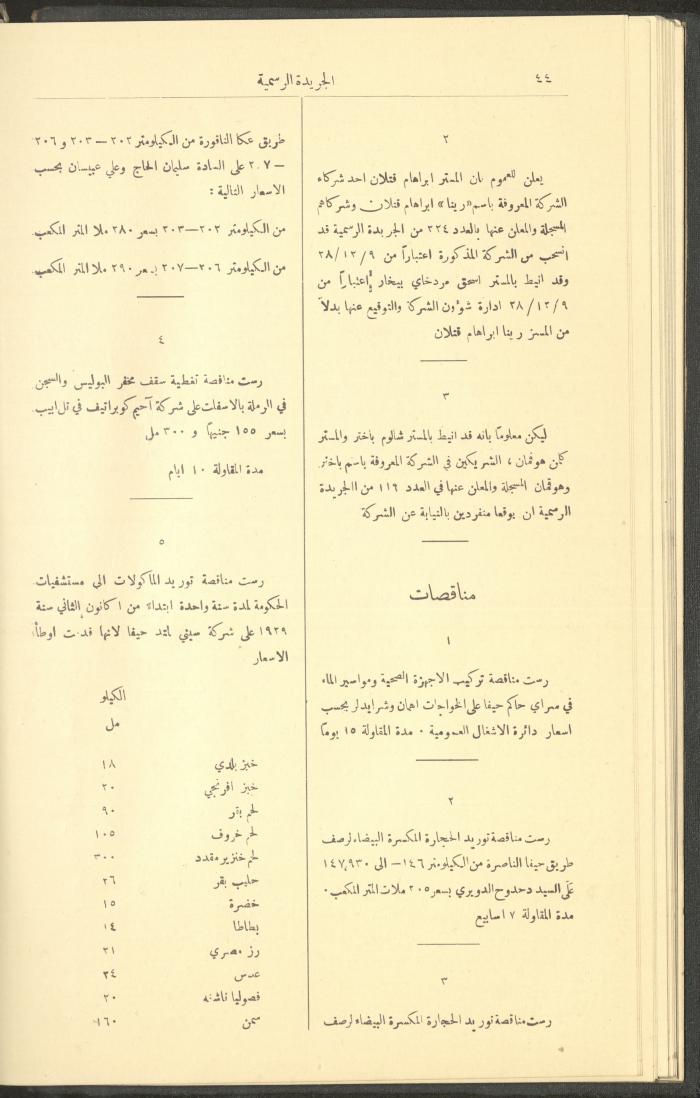 ٤٤
الجريدة الرسمية
٢
يعلن للعموم بان المستر ابراهام فتلان احد شركاء
الشركة المعروفة باسم «رينا» ابراهام فتلان وشركاهم
المسجلة والمعلن عنها بالعدد ٢٢٤ من الجريدة الرسمية قد
انسحب من الشركة المذكورة اعتباراً من ٢٨/١٢/٩
وقد انيط بالمستر اسحق مردخاي بيخار إعتباراً من
٢٨/١٢/٩ ادارة شؤون الشركة والتوقيع عنها بدلاً
من المسز رينا ابراهام فتلان
٣
ليكن معلوماً بانه قد انيط بالمستر شالوم باختر والمستر
كلمن هوفمان ، الشريكين في الشركة المعروفة باسم باختر
وهوفمان المسجلة والمعلن عنها في العدد ١١٩ من االجريدة
الرسمية ان يوقعا منفردين بالنيابة عن الشركة
مناقصات
١
رست مناقصة تركيب الاجهزة الصحية ومواسير الماء
في سراي حاكم حيفا على الخواجات اهمان وشرايدلر بحسب
اسعار دائرة الاشغال العمومية ٠ مدة المقاولة ١٥ يوماً
٢
رست مناقصة توريد الحجارة المكسرة البيضاء لرصف
طريق حيفا الناصرة من الكيلومتر ١٤٦ — الى ١٤٧,٩٣٠
على السيد دحدوح الدويري بسعر ٢٠٥ ملات المتر المكعب ٠
مدة المقاولة ٧ اسابيع
٣
رست مناقصة توريد الحجارة المكسرة البيضاء لرصف
طريق عكا النافورة من الكيلومتر ٢٠٢ — ٢٠٣ و ٢٠٦
— ٢٠٧ على السادة سليمان الحاج وعلي عبيسان بحسب
الاسعار التالية :
من الكيلومتر ٢٠٢—٢٠٣ بسعر ٢٨٠ ملا المتر المكعب
من الكيلومتر ٢٠٦—٢٠٧ بسعر ٢٩٠ ملا المتر المكعب
٤
رست مناقصة تغطية سقف مخفر البوليس والسجن
في الرملة بالاسفلت على شركة آحيم كوبراتيف في تل ابيب
بسعر ١٥٥ جنيهاً و ٣٠٠ مل
مدة المقاولة ١٠ ايام
٥
رست مناقصة توريد الماكولات الى مستشفيات
الحكومة لمدة سنة واحدة ابتداء من ١ كانون الثاني سنة
١٩٢٩ على شركة سيني لمتد حيفا لانها قدمت اوطأ
الاسعار
الكيلو
مل
خبز بلدي ١٨
خبز افرنجي ٢٠
لحم بقر ٩٠
لحم خروف ١٠٥
لحم خنزير مقدد ٣٠٠
حليب بقر ٢٦
خضرة ١٥
بطاطا ١٤
رز مصري ٢١
عدس ٢٤
فصوليا ناشفه ٢٠
سمن ١٦٠